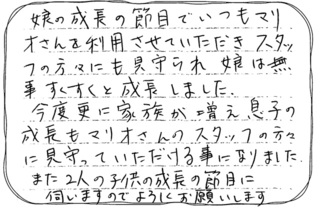 娘の成長の節目でいつもマリ
オさんを利用させていただき スタッ
フの方々にも見守られ 娘は無
事 すくすくと成長しました。
今度更に家族が増え 息子の
成長もマリオさんのスタッフの方々
に見守っていただける事になりました
また2人の子供の成長の節目に
伺いますのでよろしくお願いします